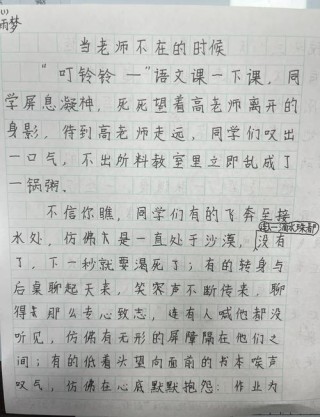 雨梦
当老师不在的时候
“叮铃铃—”语文课一下课，同
学屏息凝神，死死望着高老师离开的
身影，待到高老师走远，同学们叹出
一口气，不出所料教室里立即乱成了
一锅粥。
不信你瞧，同学们有的飞奔至接
水处，仿佛是一直处于沙漠，连一滴水珠都没有
了，下一秒就要渴死了；有的转身与
后桌聊起天来，笑容声不断传来，聊
得那么专心致志，连有人喊他都没
听见，仿佛有无形的屏障隔在他们之
间；有的低着头望向面前的书本唉声
叹气，仿佛在心底默默抱怨：作业为